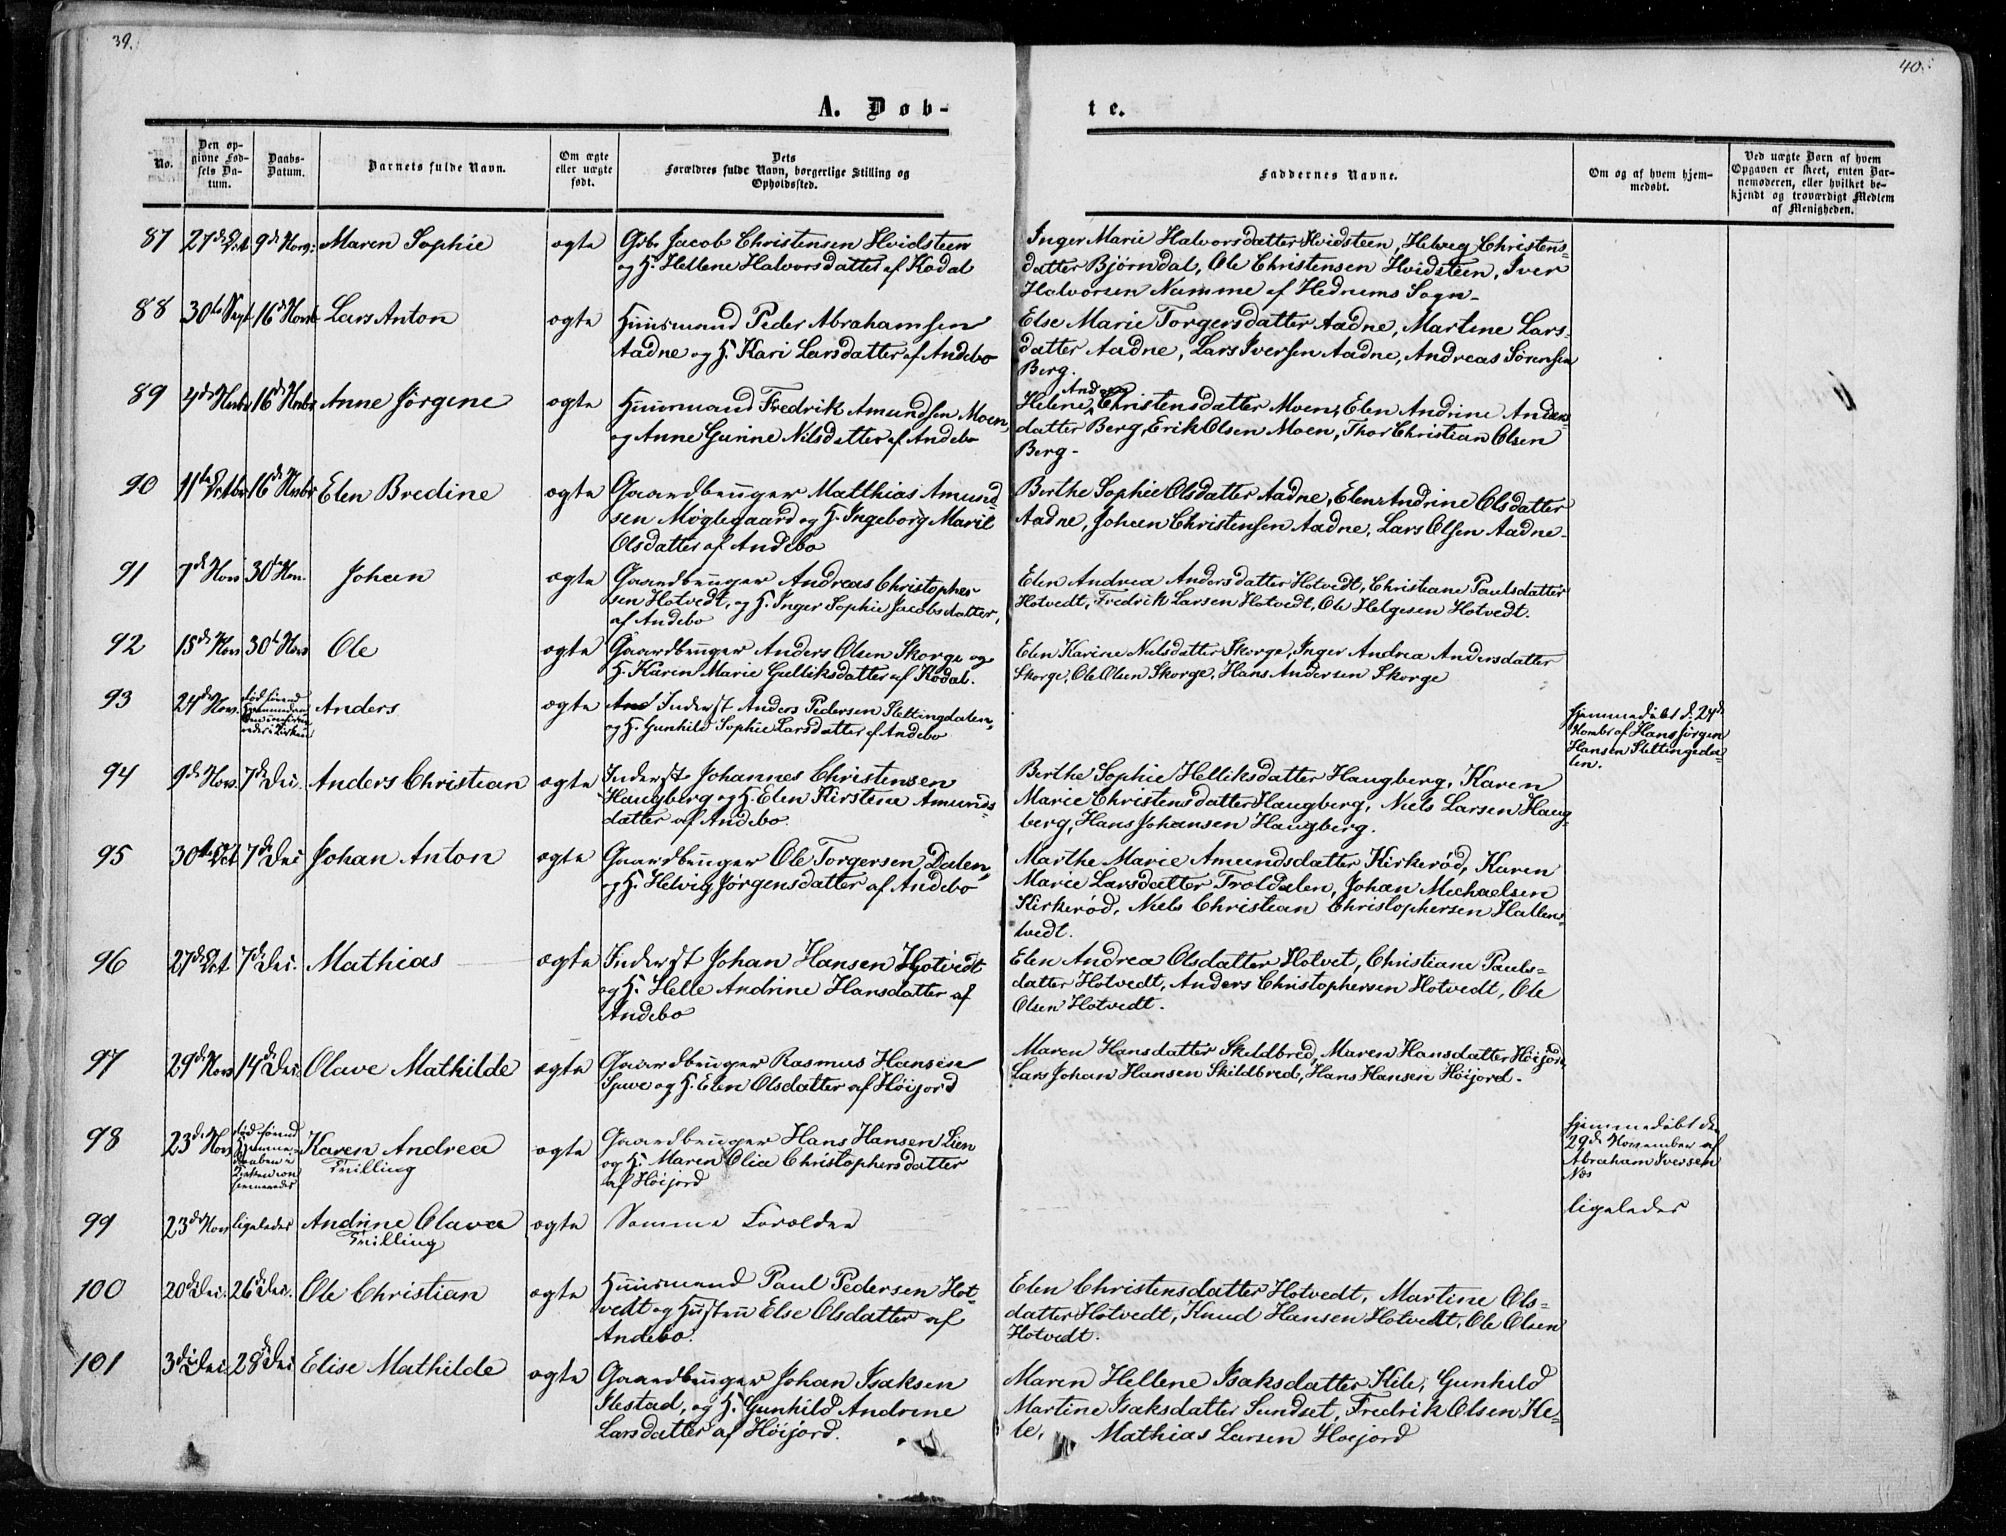 39.
40.
A. Døb-
te.
No.
Den opgivne Fødsels Datum.
Daabs-Datum.
Barnets fulde Navn.
Om ægte eller uægte født.
Dets Forældres fulde Navn, borgerlige Stilling og Opholdssted.
Faddernes Navne.
Om og af hvem hjemmedøbt.
Ved uægte Børn af hvem Opgaven er skeet, enten Barnemoderen, eller hvilket bekjendt og troværdigt Medlem af Menigheden.
87 27de Oct 9de Novr: Maren Sophie ægte Gdbr Jacob Christensen Hvidsteen
og H. Hellene Halvorsdatter af Kodal
Inger Marie Halvorsdatter Hvidsteen, Helvig Christens=
datter Bjørndal, Ole Christensen Hvidsteen, Iver
Halvorsen Namme af Hedrums Sogn-
88 30te Sept 16de Novbr Lars Anton ægte Huusmand Peder Abrahamsen
Aadne og H. Kari Larsdatter af Andebo
Else Marie Torgersdatter Aadne, Martine Lars-
datter Aadne, Lars Iversen Aadne, Andreas Sørensen
Berg.
89 4de Novbr 16de Novbr Anne Jørgine ægte Huusmand Fredrik Amundsen Moen,
og Anne Gurine Nilsdatter af Andebo
Helene Andrea Christensdatter Moen, Elen Andrine Anders=
datter Berg, Erik Olsen Moen, Thor Christian Olsen
Berg-
90 11te Octbr 16de Novbr Elen Bredine ægte Gaardbruger Matthias Amund=
sen Møglegaard og H. Ingeborg Marie
Olsdatter af Andebo
Berthe Sophie Olsdatter Aadne, Elen Andrine Olsdatter
Aadne, Johan Christensen Aadne, Lars Olsen Aadne-
91 7de Nov 30te Nov. Johan ægte Gaardbruger Andreas Christopher
sen Hotvedt, og H. Inger Sophie Jacobsdatter,
af Andebo
Elen Andrea Andersdatter Hotvedt, Christiane Paulsdatter
Hotvedt, Fredrik Larsen Hotvedt, Ole Helgesen Hotvedt.
92 15de Nov 30te Nov Ole ægte Gaardbruger Anders Olsen Skorge og
H. Karin Marie Gulliksdatter af Kodal.
Elen Karine Nilsdatter Skorge, Inger Andrea Andersdatter
Skorge, Ole Olsen Skorge, Hans Andersen Skorge
93 24de Nov. død førend Anders ægte Inderst Anders Pedersen Slettingdalen,
og H. Gunhild Sophie Larsdatter af Andebo
Hjemmedøbt d: 24de
Novbr af Hans Jørgen
Hansen Slettingeda-
len.
94 9de Nov. 7de Dec. Anders Christian ægte Inderst Johannes Christensen
Haugberg og H. Elen Kirstine Amunds=
datter af Andebo.
Berthe Sophie Helliksdatter Haugberg, Karen
Marie Christensdatter Haugberg, Niels Larsen Haug-
berg, Hans Johansen Haugberg.
95 30te Oct 7de Dec Johan Anton ægte Gaardbruger Ole Torgersen Dalen,
og H. Helvig Jørgensdatter af Andebo
Marthe Marie Amundsdatter Kirkerød, Karen
Marie Larsdatter Troldalen, Johan Michaelsen
Kirkerød, Niels Christian Christophersen Hallens-
vedt.
96 27de Oct 7de Dec. Mathias ægte Inderst Johan Hansen Hotvedt
og H. Helle Andrine Hansdatter af
Andebo
Elen Andrea Olsdatter Hotvet, Christiane Pauls=
datter Hotvedt, Anders Christophersen Hotvedt, Ole
Olsen Hotvedt.
97 29de Nov 14de Dec. Olave Mathilde ægte Gaardbruger Rasmus Hansen
og H. Elen Olsdatter af Høijord
Maren Hansdatter Skildbred, Maren Hansdatter Høijord,
Lars Johan Hansen Skildbred, Hans Hansen Høijord.
98 23de Nov død førend Hjemme-
daaben i
Kirken con
firmeredes
Karen Andrea
Trilling
ægte Gaardbruger Hans Hansen Lien
og H. Maren Olia Christophersdatter
af Høijord
Hjemmedøbt den
29de November af
Abraham Iversen
Næs
99 23de Nov ligeledes Andrine Olava
Trilling
ægte Samme Forældre
ligeledes
100 20de Dec. 26de Dec. Ole Christian ægte Huusmand Paul Pedersen Hot-
vedt og Hustru Else Olsdatter af
Andebo.
Elen Christensdatter Hotvedt, Martine Ols=
datter Hotvedt, Knud Hansen Hotvedt, Ole Olsen
Hotvedt.
101 3de Dec. 28de Dec Elise Mathilde ægte Gaardbruger Johan Isaksen
Ilestad, og H. Gunhild Andrine
Larsdatter af Høijord.
Maren Hellene Isaksdatter Kile, Gunhild
Martine Isaksdatter Sundset, Fredrik Olsen Ke-
le, Mathias Larsen Høijord